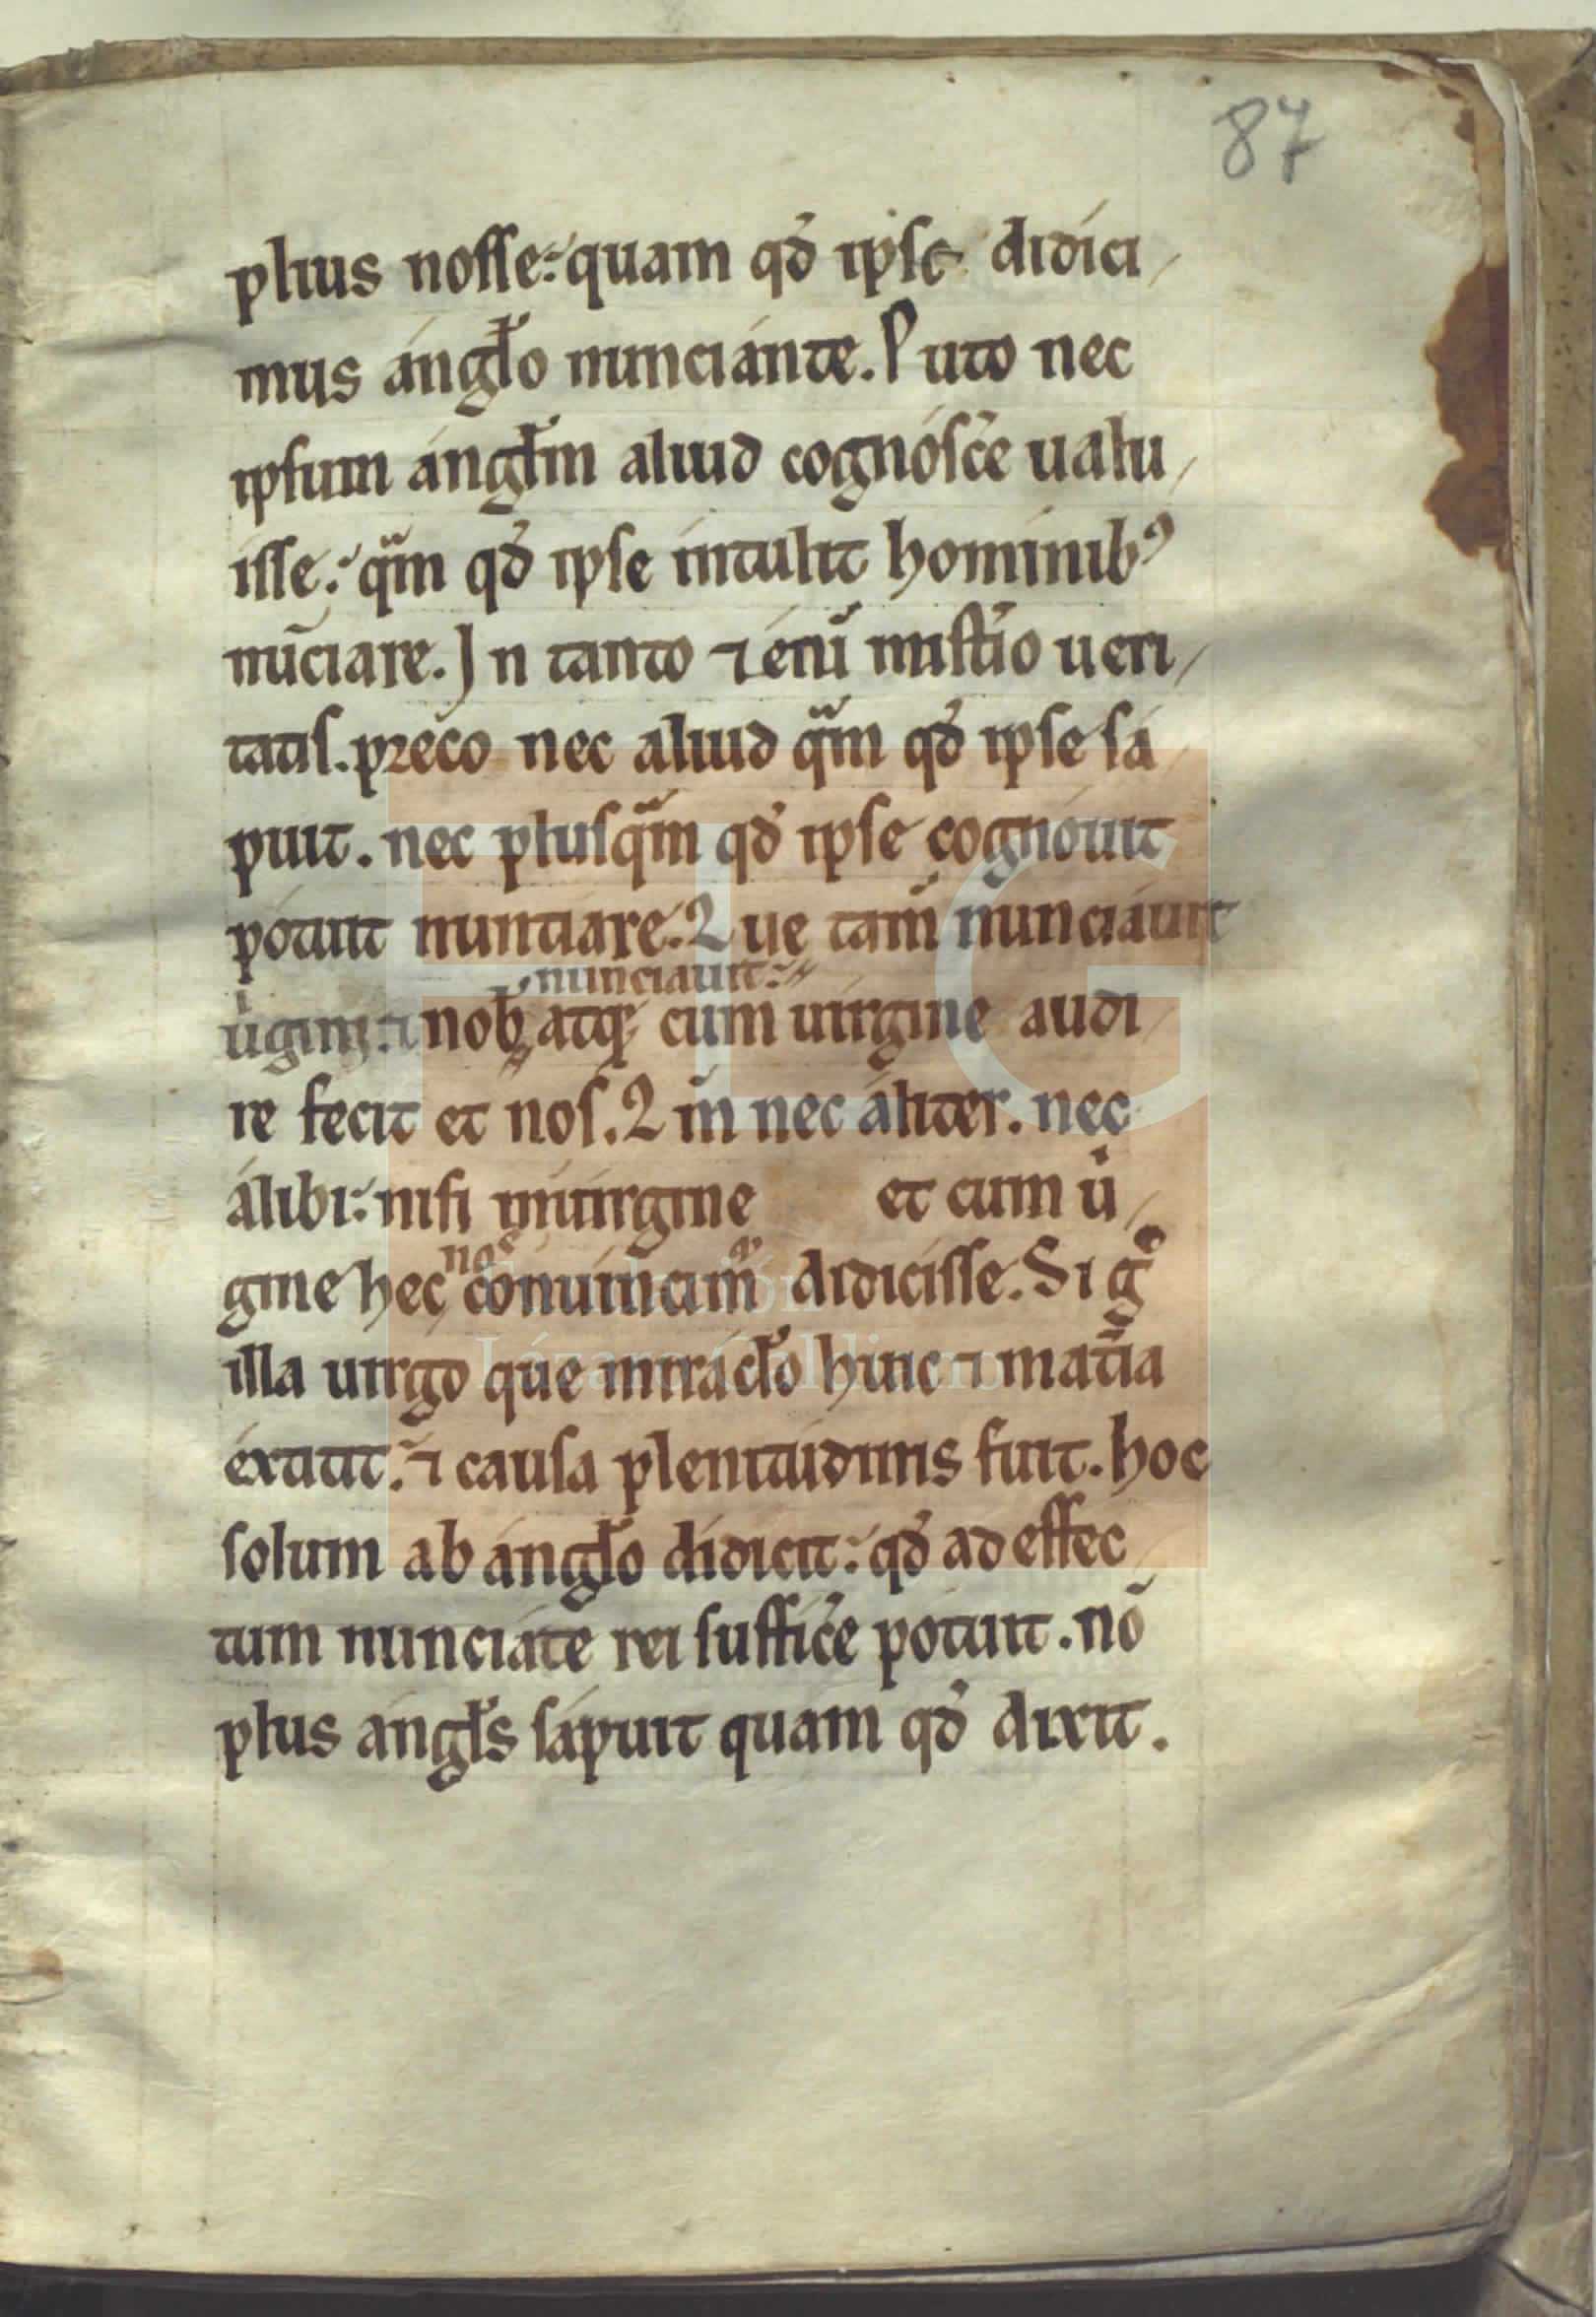 87
plius nosse: quam qd̕ ipse didici-
mus ángło nunciánte. Puto nec
ipsum ángłm aliud cognósc̄e ualu-
isse: qᵃm qd̕ ipse íntulit hominibꝰ
nūciare. In tanto ⁊ enī mist̄io ueri-
tatis. preco nec aliud qᵃm qd̕ ipse sá-
puit. nec plusqᵃm qd̕ ipse cognóuit
pótuit nuntiare. Que tam̄ nunciáuit
nunciauit:
uⁱginj: ⁊ nob̵ atq; cum uirgine audi-
re fecit et nos. Qm̄ nec áliter. nec
álibi: nisi in uirgine et cum uⁱ-
nos
gine hec conuincim᷒ didicisse. Si gᵒ
illa uirgo que mirácło hinc ⁊ mat̄ia
éxtitit: ⁊ causa plenitudinis fuit. hoc
solum ab ángło didicit: qd̕ ad effec-
tum nunciáte rei suffic̄e pótuit. nō
plus ángłs sápuit quam qd̕ dixit.
FLG